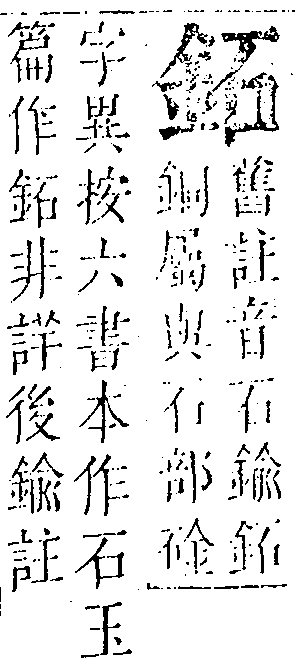 鉐
舊註音石鍮鉐
銅屬與石部䂡
字異按六書本作石玉
篇作鉐非詳後鍮註